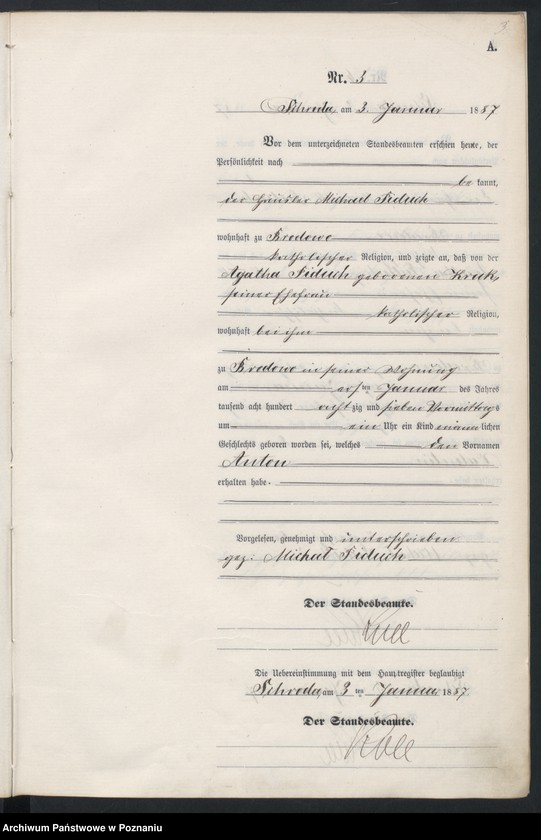 3
A.
Nr. 3
Schroda am 3. Januar 1887
Vor dem unterzeichneten Standesbeamten erschien heute, der
Persönlichkeit nach
be kannt,
der Häusler Michael Fiduch
wohnhaft zu Brodowo
katholischer Religion, und zeigte an, daß von der
Agatha Fiduch geborenen Kruk,
seiner Ehefrau
katholischer Religion,
wohnhaft bei ihm
zu Brodowo in seiner Wohnung
am ersten Januar des Jahres
tausend acht hundert achtzig und sieben Vormittags
um ein Uhr ein Kind männlichen
Geschlechts geboren worden sei, welches den Vornamen
Anton
erhalten habe.
Vorgelesen, genehmigt und unterschrieben
gez: Michael Fiduch
Der Standesbeamte.
Die Uebereinstimmung mit dem Hauptregister beglaubigt
Schroda, am 3ten Januar 1887
Der Standesbeamte.
Archiwum Państwowe w Poznaniu